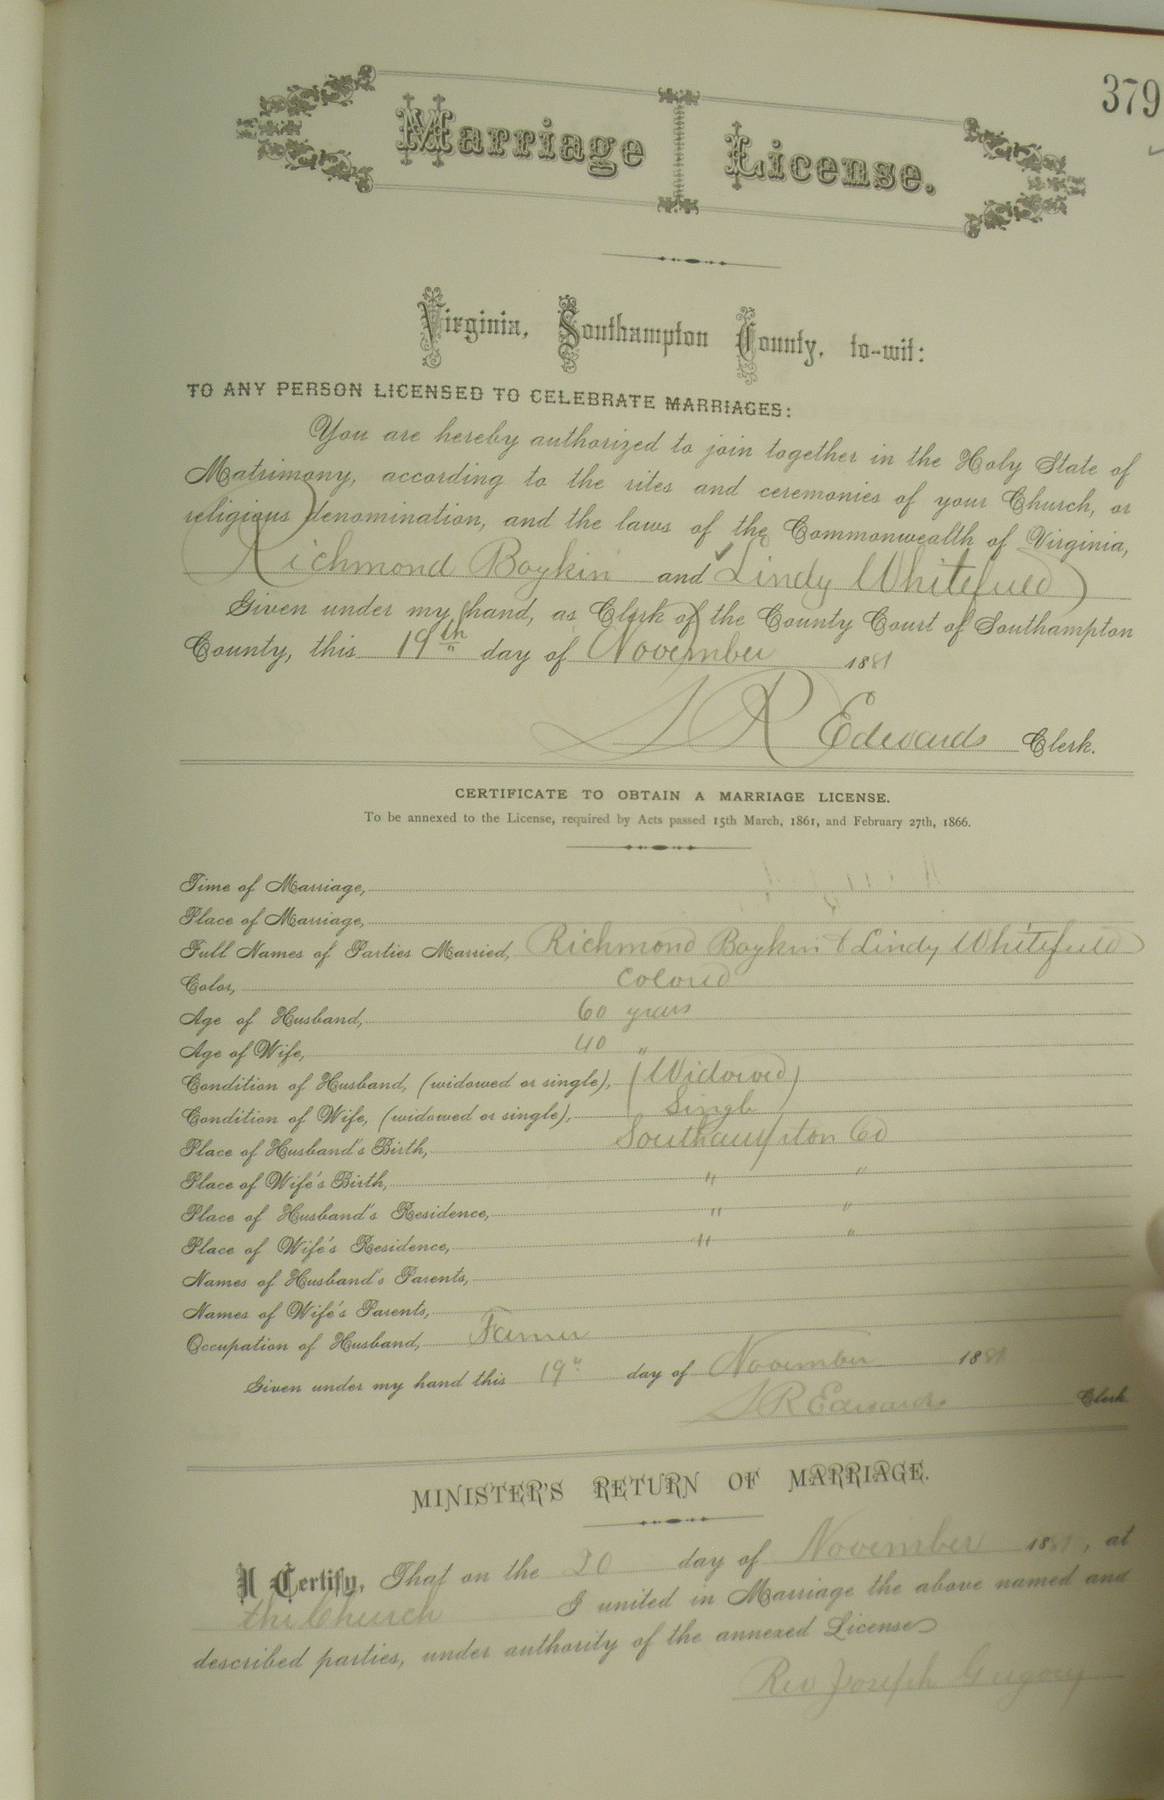 379
Marriage License.
Virginia, Southampton County, to-wit:
TO ANY PERSON LICENSED TO CELEBRATE MARRIAGES:
You are hereby authorized to join together in the Holy State of
Matrimony, according to the rites and ceremonies of your Church, or
religious denomination, and the laws of the Commonwealth of Virginia,
Richmond Boykin and Lindy Whitefield
Given under my hand, as Clerk of the County Court of Southampton
County, this 19th day of November 1881
L R Edwards Clerk.
CERTIFICATE TO OBTAIN A MARRIAGE LICENSE.
To be annexed to the License, required by Acts passed 15th March, 1861, and February 27th, 1866.
Time of Marriage,
Place of Marriage,
Full Names of Parties Married, Richmond Boykin & Lindy Whitefield
Color, Colored
Age of Husband, 60 years
Age of Wife, 40 "
Condition of Husband, (widowed or single), Widowed
Condition of Wife, (widowed or single), Single
Place of Husband's Birth, Southampton Co
Place of Wife's Birth, " "
Place of Husband's Residence, " "
Place of Wife's Residence, " "
Names of Husband's Parents,
Names of Wife's Parents,
Occupation of Husband, Farmer
Given under my hand this 19" day of November 1881
L R Edwards Clerk.
MINISTER'S RETURN OF MARRIAGE.
I Certify, That on the 20 day of November 1881, at
the Church I united in Marriage the above named and
described parties, under authority of the annexed License
Rev Joseph Gregory